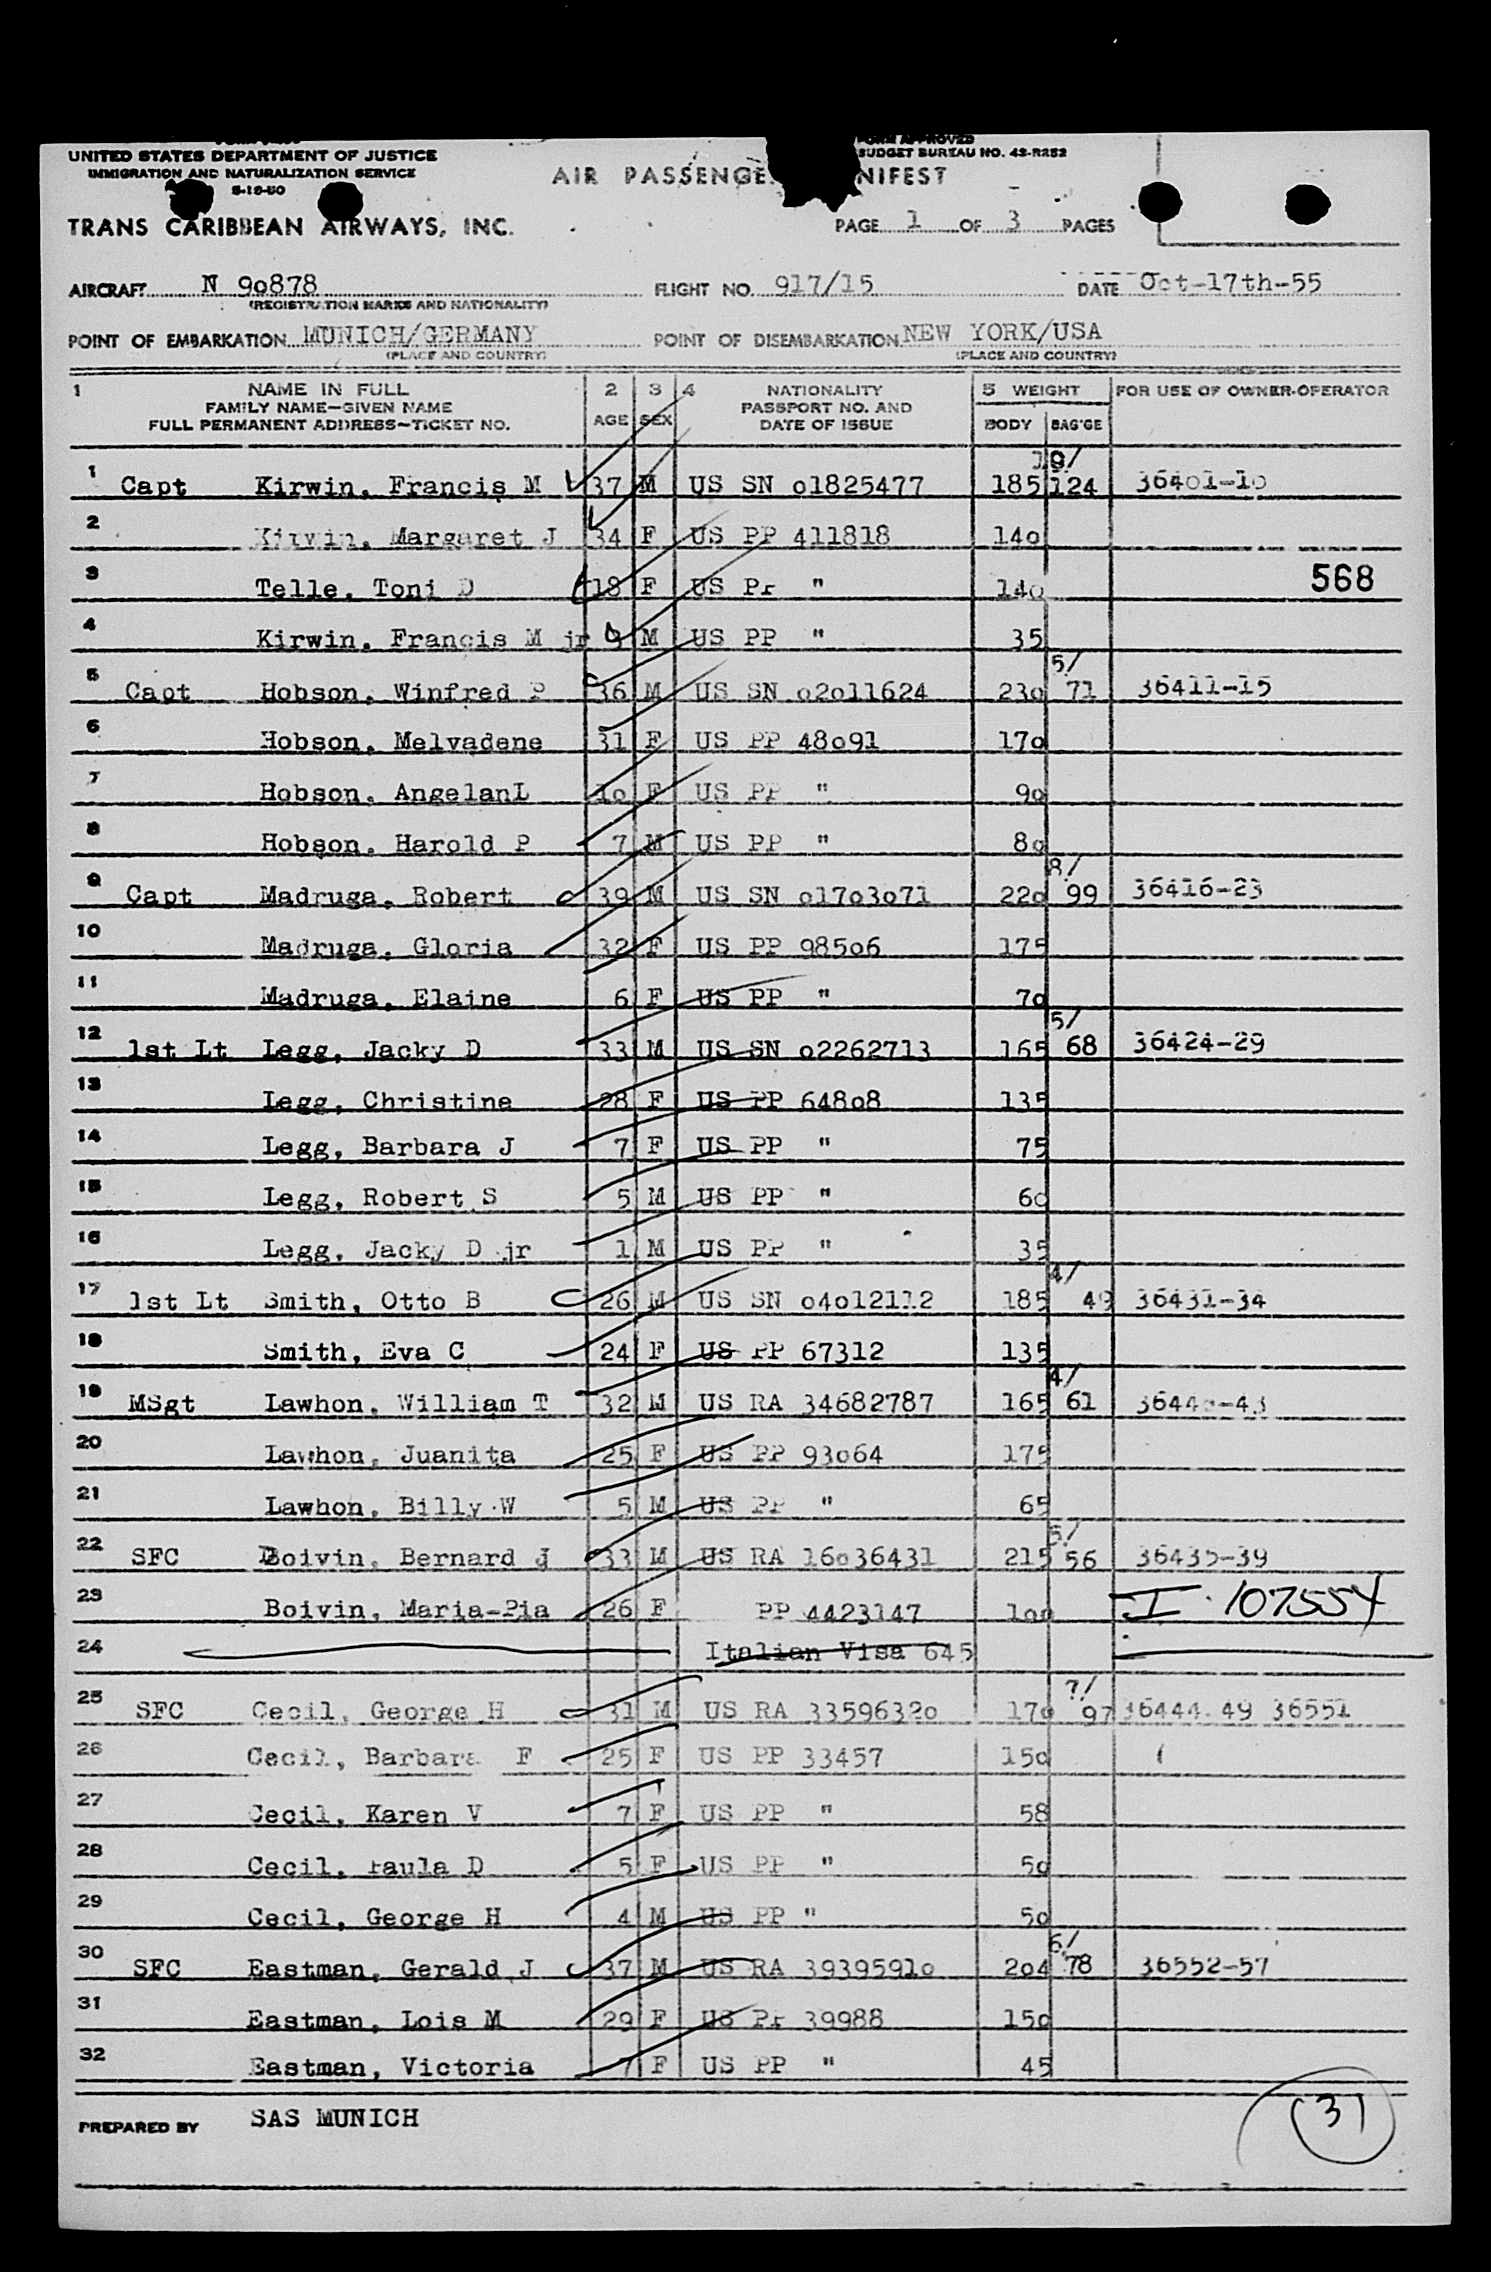 UNITED STATES DEPARTMENT OF JUSTICE
IMMIGRATION AND NATURALIZATION SERVICE
FORM APPROVED
BUDGET BUREAU NO. 43-R252
AIR PASSENGE NIFEST
TRANS CARIBBEAN AIRWAYS, INC.
PAGE 1 OF 3 PAGES
AIRCRAFT N 90878
(REGISTRATION MARKS AND NATIONALITY)
FLIGHT NO. 917/15
DATE Oct-17th-55
POINT OF EMBARKATION MUNICH/GERMANY
(PLACE AND COUNTRY)
POINT OF DISEMBARKATION NEW YORK/USA
(PLACE AND COUNTRY)
1 NAME IN FULL
FAMILY NAME-GIVEN NAME
FULL PERMANENT ADDRESS-TICKET NO.
2 AGE
3 SEX
4 NATIONALITY
PASSPORT NO. AND
DATE OF ISSUE
5 WEIGHT
BODY BAG'GE
FOR USE OF OWNER-OPERATOR
1 Capt Kirwin, Francis M 37 M US SN o1825477 185 10/ 124 36401-10
2 Kirwin, Margaret J 34 F US PP 411818 14o
3 Telle, Toni D 18 F US PP " 14o 568
4 Kirwin, Francis M jr 3 M US PP " 35
5 Capt Hobson, Winfred P 36 M US SN o2o11624 23o 5/ 71 36411-15
6 Hobson, Melvadene 31 F US PP 48o91 17o
7 Hobson, AngelanL 1o F US PP " 9o
8 Hobson, Harold P 7 M US PP " 8o
9 Capt Madruga, Robert 39 M US SN o17o3o71 22o 8/ 99 36416-23
10 Madruga, Gloria 32 F US PP 985o6 175
11 Madruga, Elaine 6 F US PP " 7o
12 1st Lt Legg, Jacky D 33 M US SN o2262713 165 5/ 68 36424-29
13 Legg, Christine 28 F US PP 648o8 135
14 Legg, Barbara J 7 F US PP " 75
15 Legg, Robert S 5 M US PP " 6o
16 Legg, Jacky D jr 1 M US PP " 35
17 1st Lt Smith, Otto B 26 M US SN o4o12112 185 4/ 49 36431-34
18 Smith, Eva C 24 F US PP 67312 135
19 MSgt Lawhon, William T 32 M US RA 34682787 165 4/ 61 3644 -43
20 Lawhon, Juanita 25 F US PP 93o64 175
21 Lawhon, Billy W 5 M US PP " 65
22 SFC Boivin, Bernard J 33 M US RA 16o36431 215 5/ 56 36435-39
23 Boivin, Maria-Pia 26 F PP 4423147 1oo I-107554
24 Italian Visa 645
25 SFC Cecil, George H 31 M US RA 3359632o 17o 7/ 97 36444-49 36551
26 Cecil, Barbara F 25 F US PP 33457 15o
27 Cecil, Karen V 7 F US PP " 58
28 Cecil, Paula D 5 F US PP " 5o
29 Cecil, George H 4 M US PP " 5o
30 SFC Eastman, Gerald J 37 M US RA 3939591o 2o4 6/ 78 36552-57
31 Eastman, Lois M 29 F US PP 39988 15o
32 Eastman, Victoria 7 F US PP " 45
PREPARED BY SAS MUNICH
31